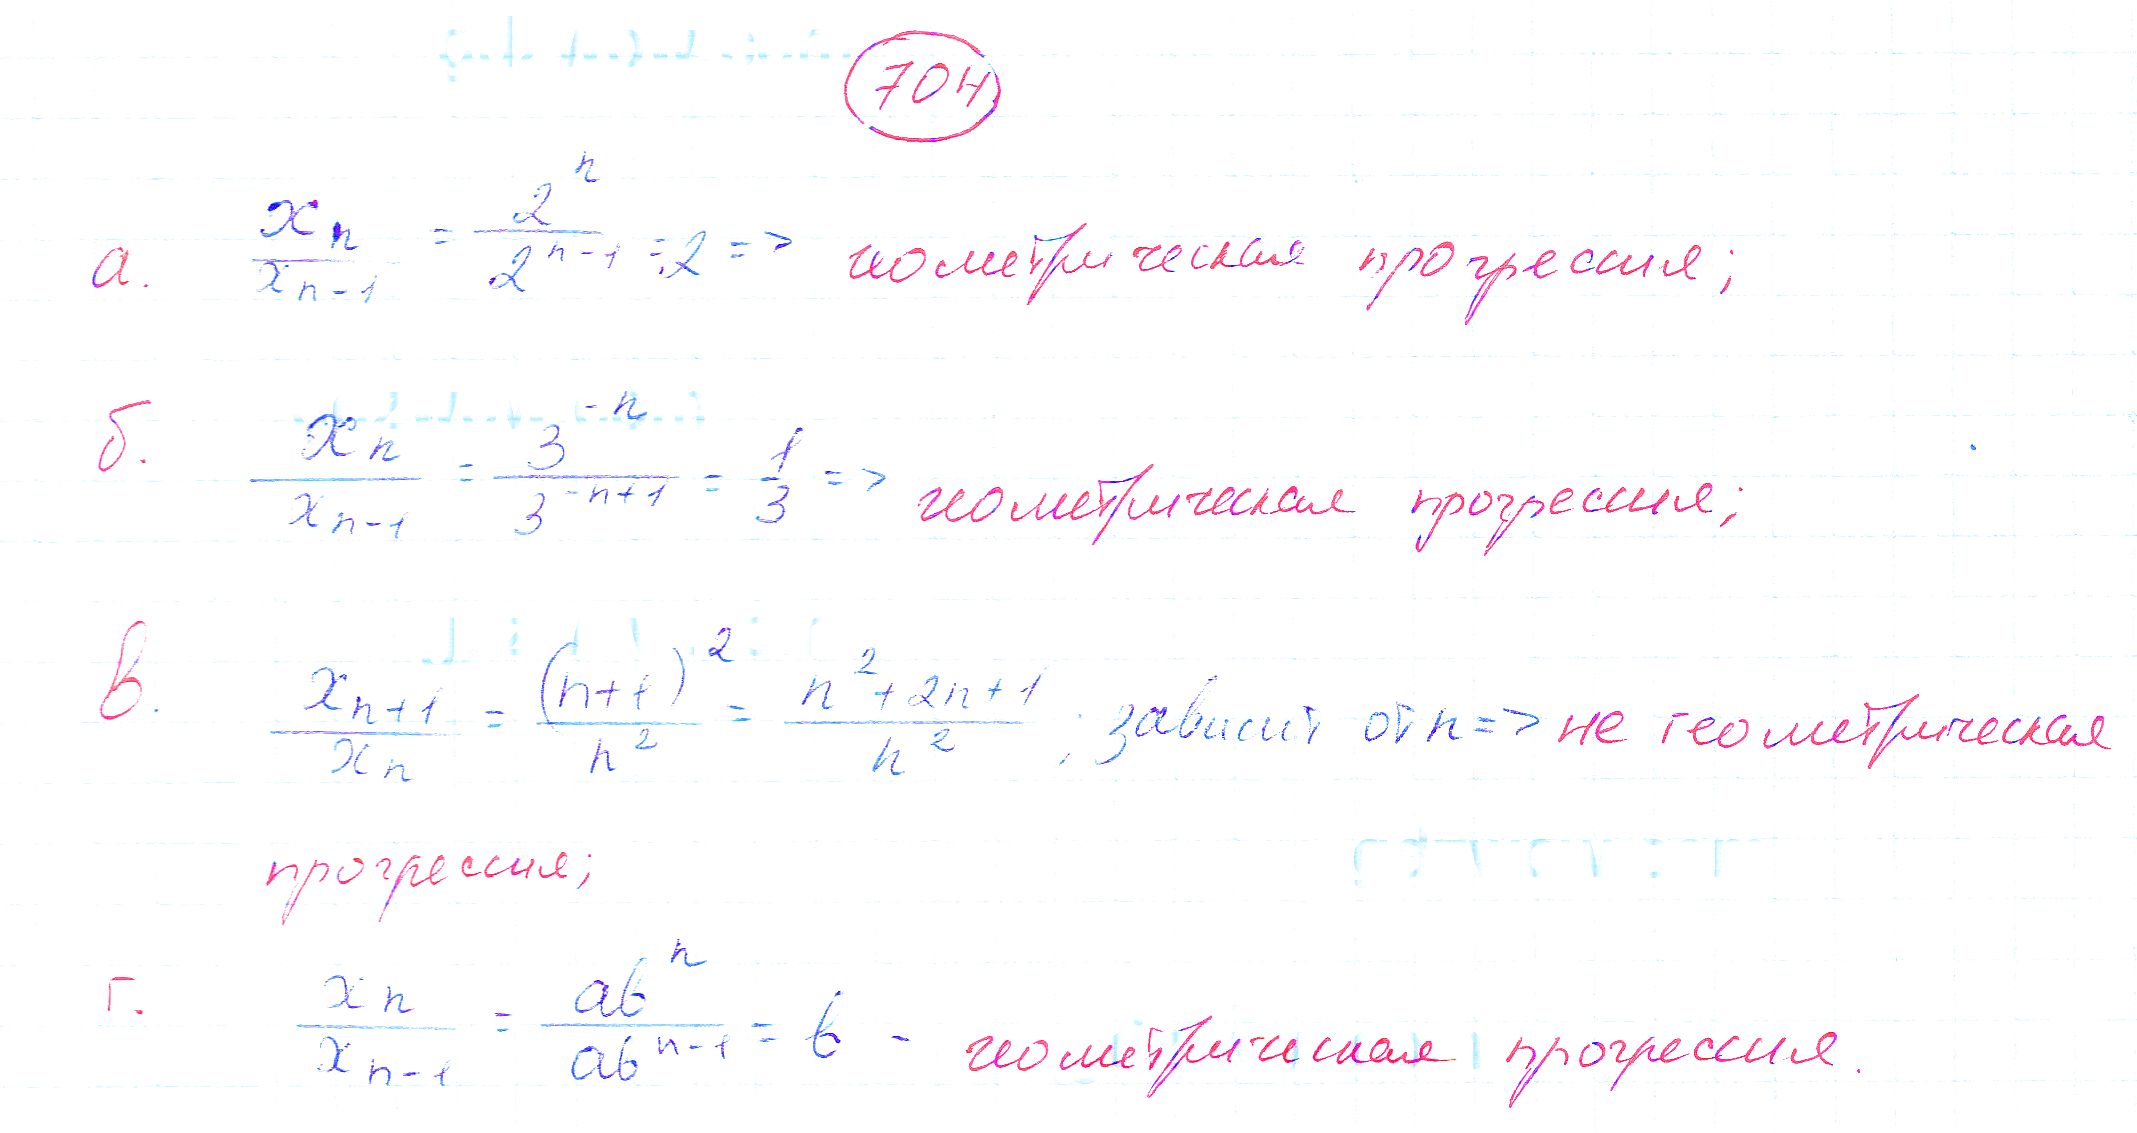 704
а. xₙ/xₙ₋₁ = 2ⁿ/2ⁿ⁻¹ = 2 => геометрическая прогрессия;
б. xₙ/xₙ₋₁ = 3⁻ⁿ/3⁻ⁿ⁺¹ = 1/3 => геометрическая прогрессия;
в. xₙ₊₁/xₙ = (n+1)²/n² = (n²+2n+1)/n²; зависит от n => не геометрическая
прогрессия;
г. xₙ/xₙ₋₁ = abⁿ/abⁿ⁻¹ = b - геометрическая прогрессия.